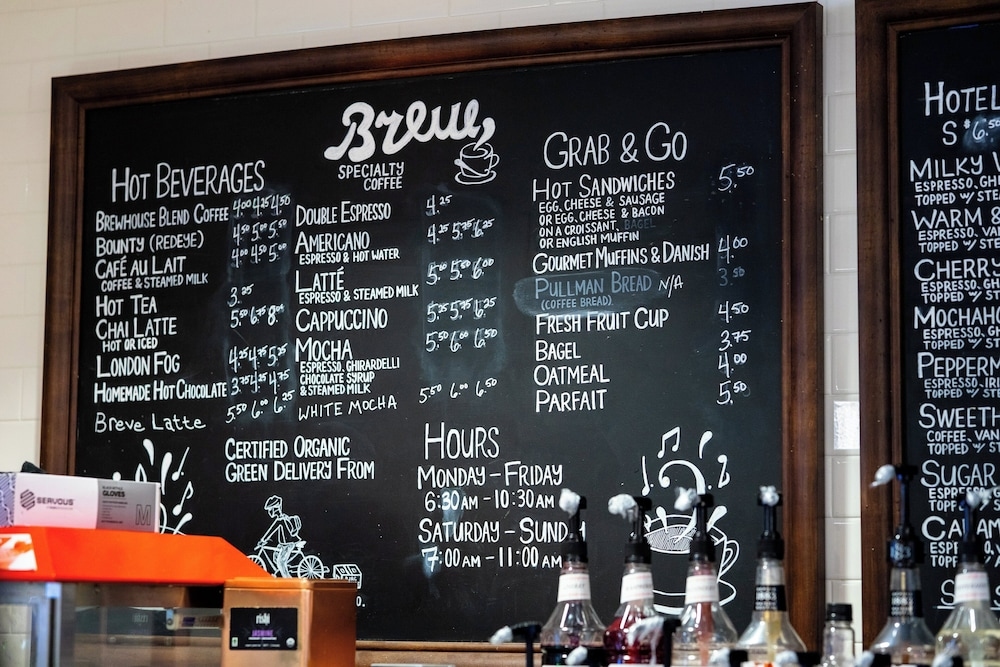 Brew
SPECIALTY
COFFEE
HOT BEVERAGES
BREWHOUSE BLEND COFFEE 4.00 4.25 4.50
BOUNTY (REDEYE) 4.50 5.00 5.50
CAFÉ AU LAIT 4.00 4.50 5.00
COFFEE & STEAMED MILK
HOT TEA 3.25
CHAI LATTE 5.50 6.75 8.00
HOT OR ICED
LONDON FOG 4.25 4.75 5.25
HOMEMADE HOT CHOCOLATE 3.75 4.25 4.75
Breve Latte 5.50 6.00 6.25
DOUBLE ESPRESSO 4.25
AMERICANO 4.25 5.75 6.25
ESPRESSO & HOT WATER
LATTÉ 5.00 5.50 6.00
ESPRESSO & STEAMED MILK
CAPPUCCINO 5.25 5.75 6.25
MOCHA 5.50 6.00 6.50
ESPRESSO, GHIRARDELLI
CHOCOLATE SYRUP
& STEAMED MILK
WHITE MOCHA 5.50 6.00 6.50
GRAB & GO
HOT SANDWICHES 5.50
EGG, CHEESE & SAUSAGE
OR EGG, CHEESE & BACON
ON A CROISSANT, BAGEL
OR ENGLISH MUFFIN
GOURMET MUFFINS & DANISH 4.00
PULLMAN BREAD N/A 3.50
(COFFEE BREAD)
FRESH FRUIT CUP 4.50
BAGEL 3.75
OATMEAL 4.00
PARFAIT 5.50
CERTIFIED ORGANIC
GREEN DELIVERY FROM
HOURS
MONDAY – FRIDAY
6:30AM – 10:30AM
SATURDAY – SUND
7:00AM – 11:00AM
HOTEL
S $6.50
MILKY
ESPRESSO,
TOPPED W/
WARM &
ESPRESSO,
TOPPED W/
CHERRY
ESPRESSO,
TOPPED W/
MOCHAH
ESPRESSO,
TOPPED W/
PEPPERM
ESPRESSO,
TOPPED W/
SWEETH
COFFEE,
TOPPED W/
SUGAR
TOPPED
TOPPED
SERVOUS
GLOVES
M
rishi
JASMINE